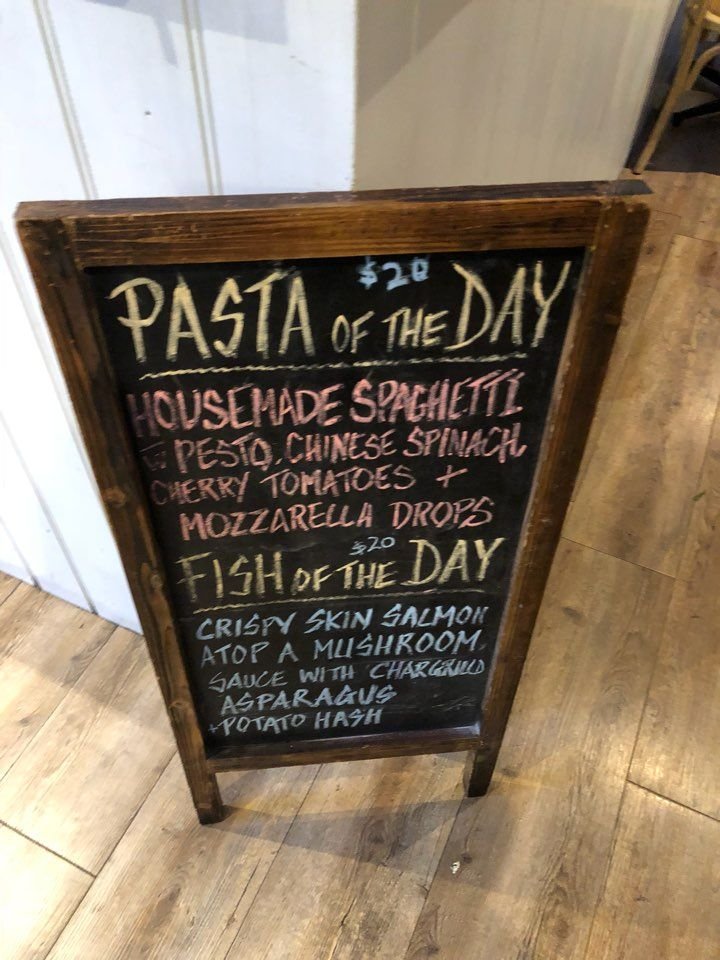 $20
PASTA OF THE DAY
HOUSEMADE SPAGHETTI
W PESTO, CHINESE SPINACH,
CHERRY TOMATOES +
MOZZARELLA DROPS
$20
FISH OF THE DAY
CRISPY SKIN SALMON
ATOP A MUSHROOM
SAUCE WITH CHARGRILLD
ASPARAGUS
+POTATO HASH